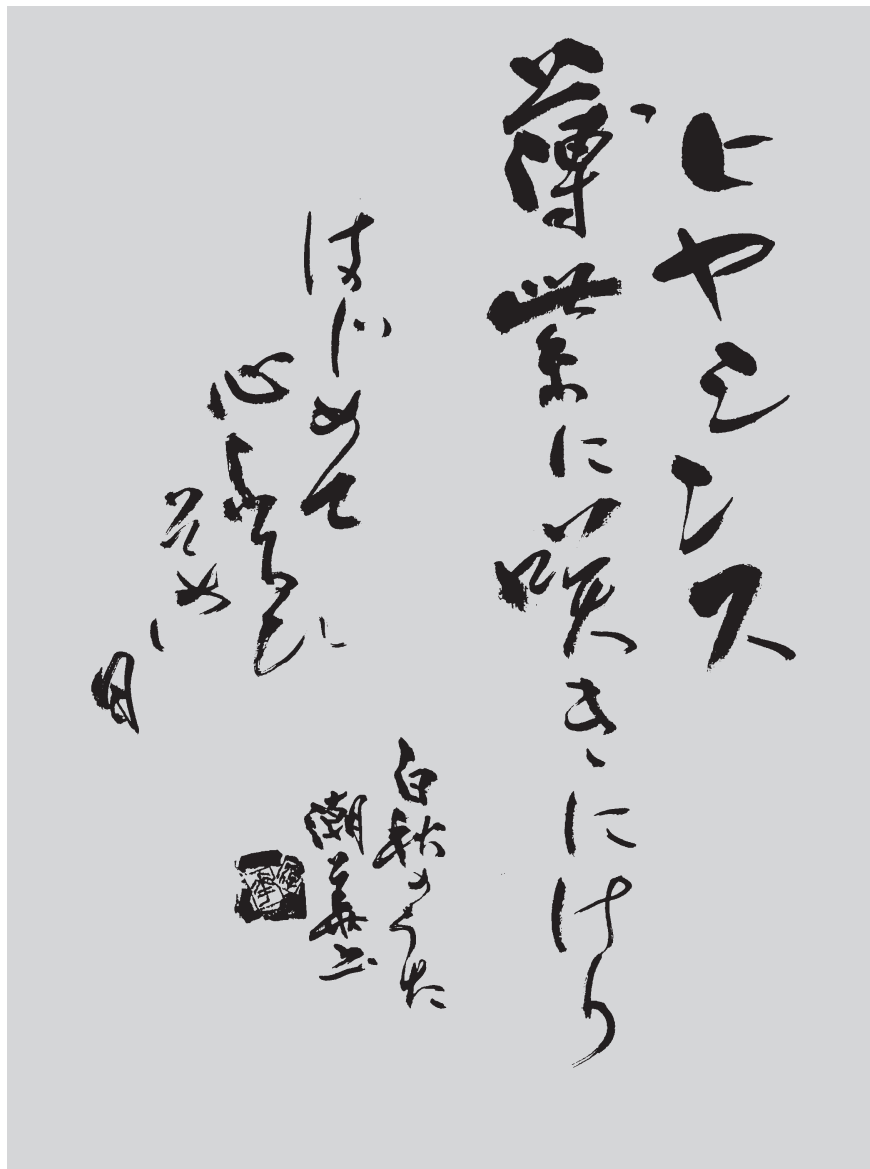 ヒヤシンス
薄紫に咲きにけり
はじめて
心ふるひ
そめし
日
白秋のうた
潮